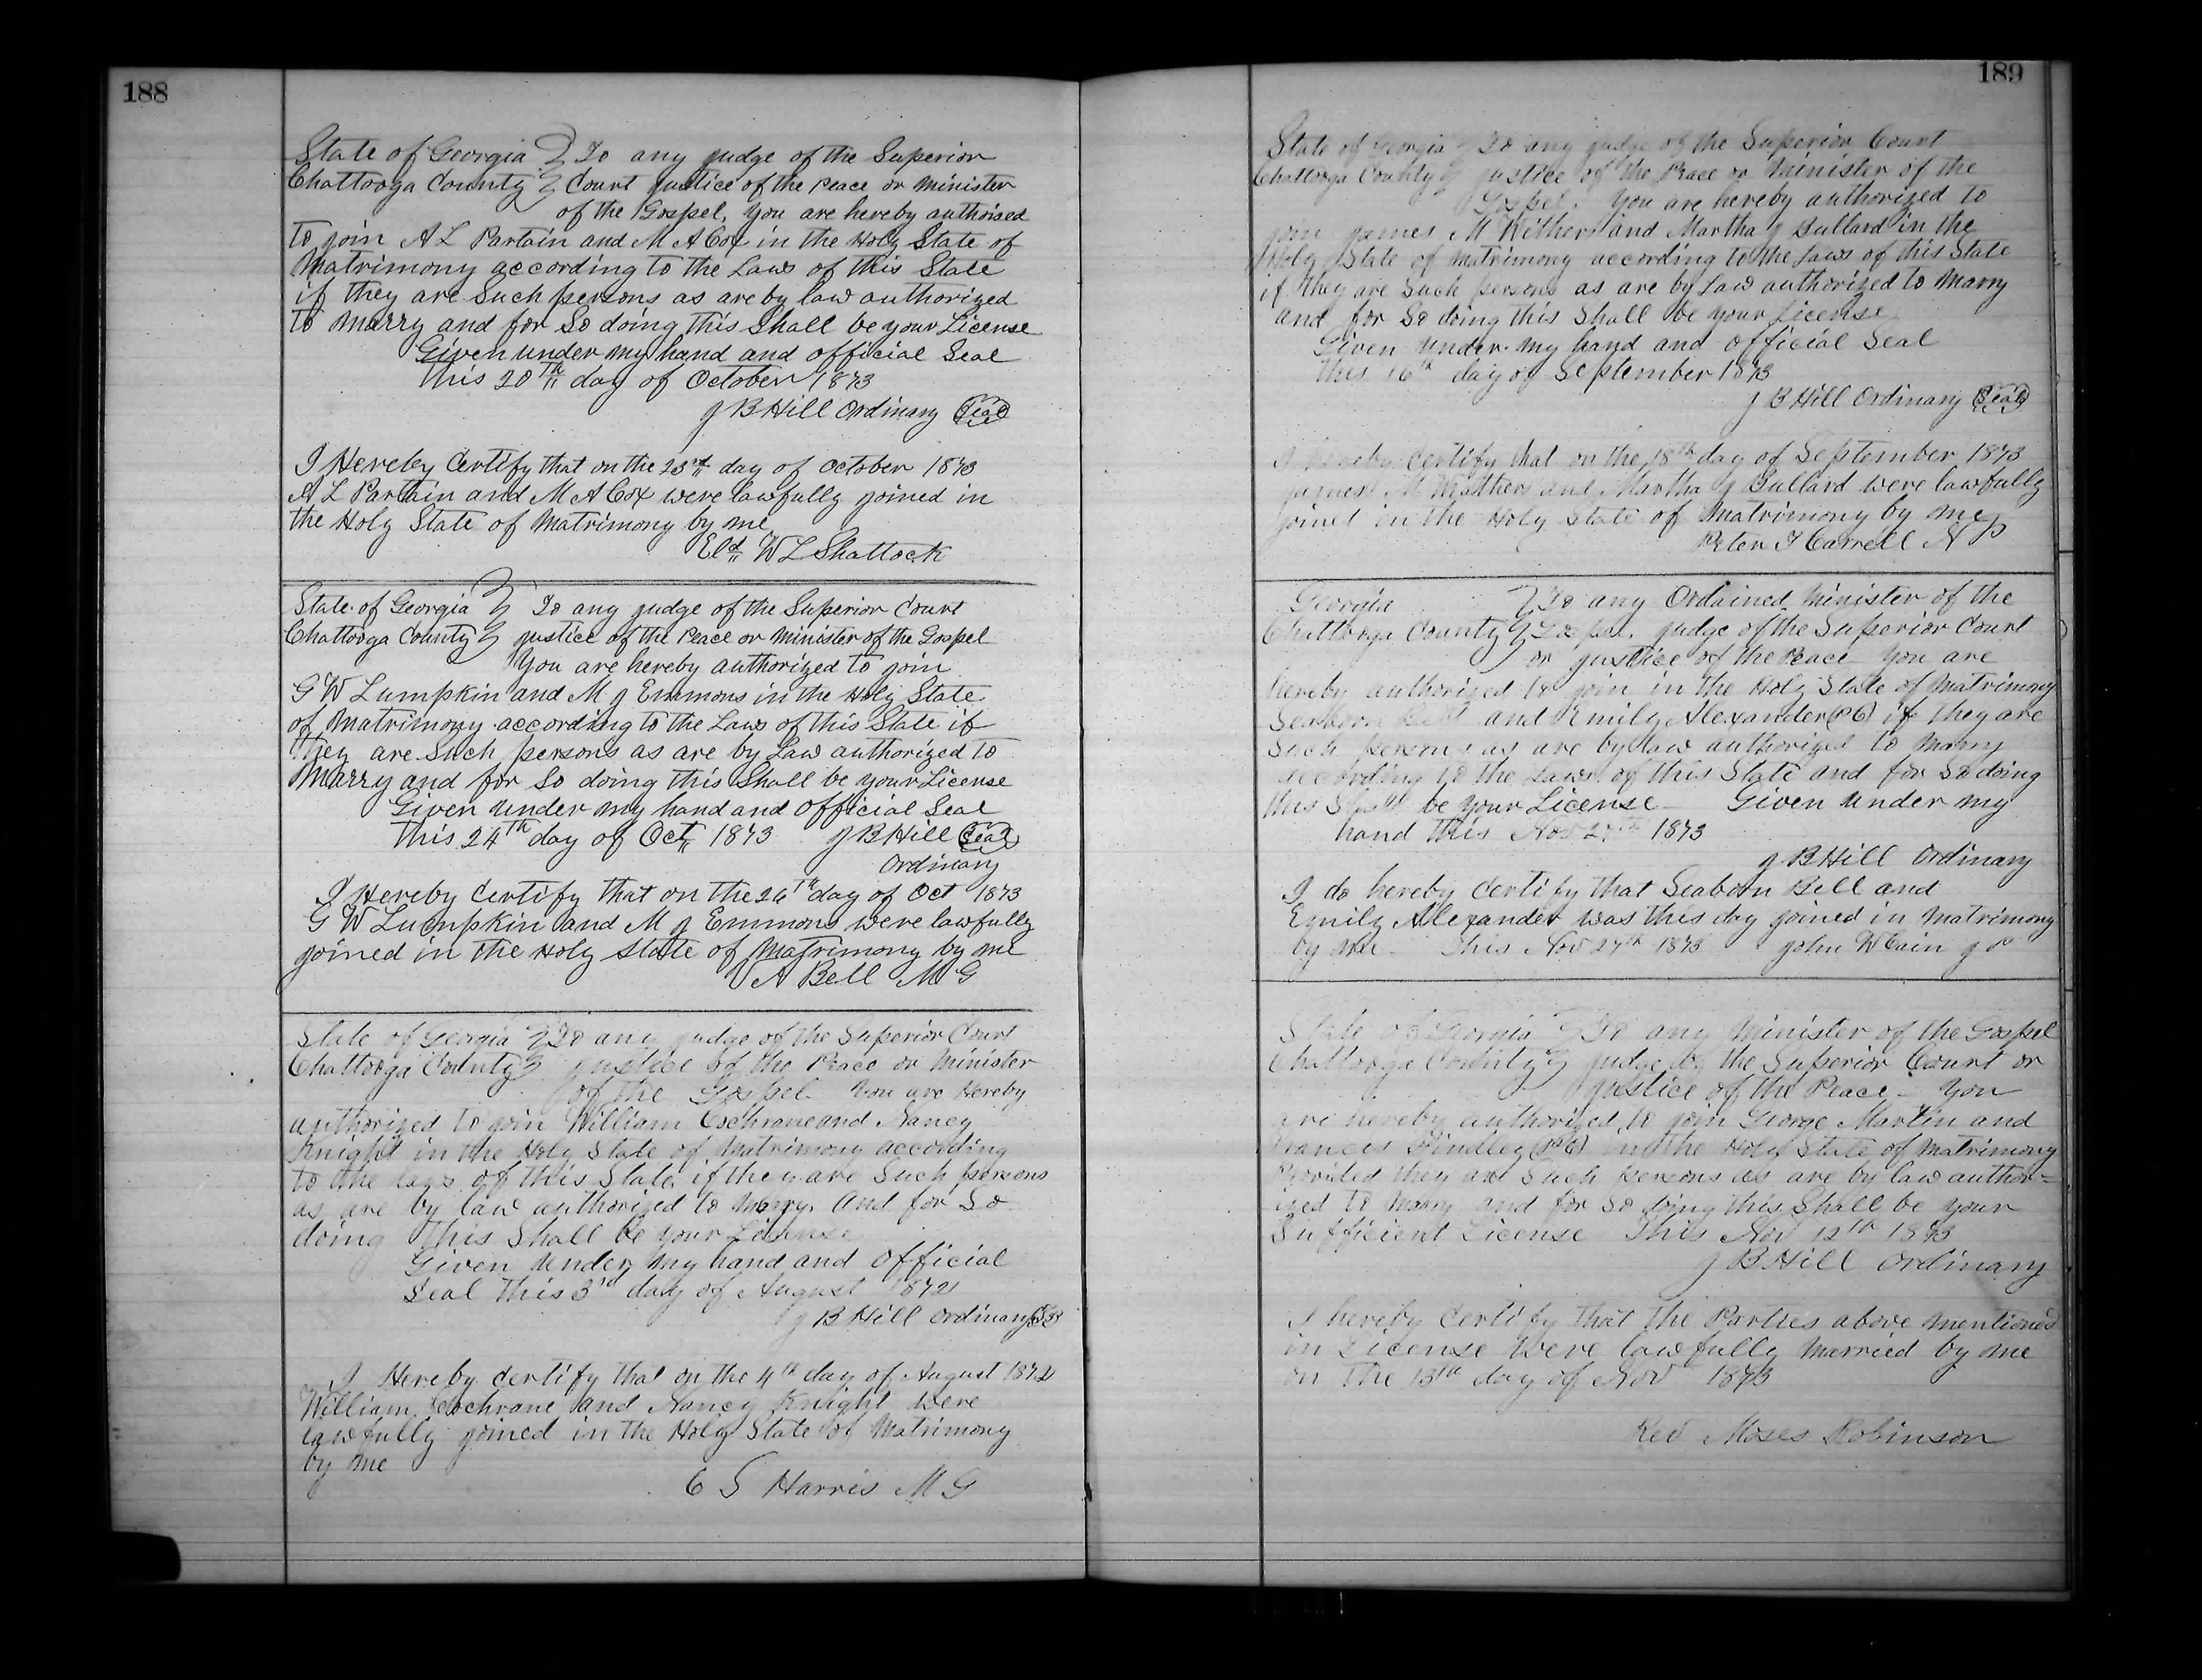 188
State of Georgia } To any judge of the Superior
Chattooga County } Court justice of the Peace or Minister
of the Gospel, You are hereby authorised
to join A L Partain and M A Cox in the Holy State of
Matrimony according to the Laws of this State
if they are Such persons as are by law authorized
to Marry and for So doing this Shall be your License
Given under my hand and official Seal
this 20th day of October 1873
J B Hill Ordinary Seal
I Hereby Certify that on the 23rd day of October 1873
A L Partain and M A Cox were lawfully joined in
the Holy State of Matrimony by me
Eld W L Shattock
State of Georgia } To any judge of the Superior Court
Chattooga County } justice of the Peace or Minister of the Gospel
You are hereby authorized to join
G W Lumpkin and M J Emmons in the Holy State
of Matrimony according to the Laws of this State if
they are Such persons as are by Law authorized to
Marry and for So doing this Shall be your License
Given under my hand and official Seal
this 24th day of Oct 1873 J B Hill Seal
Ordinary
I Hereby Certify that on the 26th day of Oct 1873
G W Lumpkin and M J Emmons were lawfully
joined in the Holy State of Matrimony by me
V A Bell M G
State of Georgia } To any judge of the Superior Court
Chattooga County } justice of the Peace or Minister
of the Gospel You are Hereby
authorized to join William Cochrane and Nancy
Knight in the Holy State of Matrimony according
to the laws of this State if they are Such persons
as are by law authorized to Marry. And for So
doing this Shall be your License
Given under my hand and official
Seal this 3rd day of August 1872
J B Hill Ordinary
I Hereby Certify that on the 4th day of August 1872
William Cochrane and Nancy Knight were
lawfully joined in the Holy State of Matrimony
by me
C S Harris M G
189
State of Georgia } To any judge of the Superior Court
Chattooga County } justice of the Peace or Minister of the
Gospel. You are hereby authorized to
join James M Withers and Martha J Bullard in the
Holy State of Matrimony according to the Laws of this State
if they are Such persons as are by Law authorized to Marry
and for So doing this Shall be your License
Given under my hand and official Seal
this 16th day of September 1873
J B Hill Ordinary Seal
I hereby Certify that on the 18th day of September 1873
James M and Martha J Bullard were lawfully
joined in the Holy State of Matrimony by me
Peter J Carrell N P
Georgia } To any Ordained Minister of the
Chattooga County } Gospel. judge of the Superior Court
or justice of the Peace You are
hereby authorized to join in the Holy State of Matrimony
Seaborn Bell and Emily Alexander (P C) if they are
Such persons as are by law authorized to marry
according to the Laws of this State and for So doing
this Shall be your License Given under my
hand this Nov 27th 1873
J B Hill Ordinary
I do hereby Certify that Seaborn Bell and
Emily Alexander was this day joined in Matrimony
by me. This Nov 27th 1873 John W Cain J P
State of Georgia } To any Minister of the Gospel
Chattooga County } judge of the Superior Court or
justice of the Peace - You
are hereby authorized to join George Martin and
Frances Findley (P C) in the Holy State of Matrimony
Provided they are Such persons as are by law author=
ized to Marry and for So doing this Shall be your
Sufficient License This Nov 12th 1873
J B Hill Ordinary
I hereby Certify that the Parties above mentioned
in License were lawfully married by me
on the 13th day of Nov 1873
Rev Moses Robinson